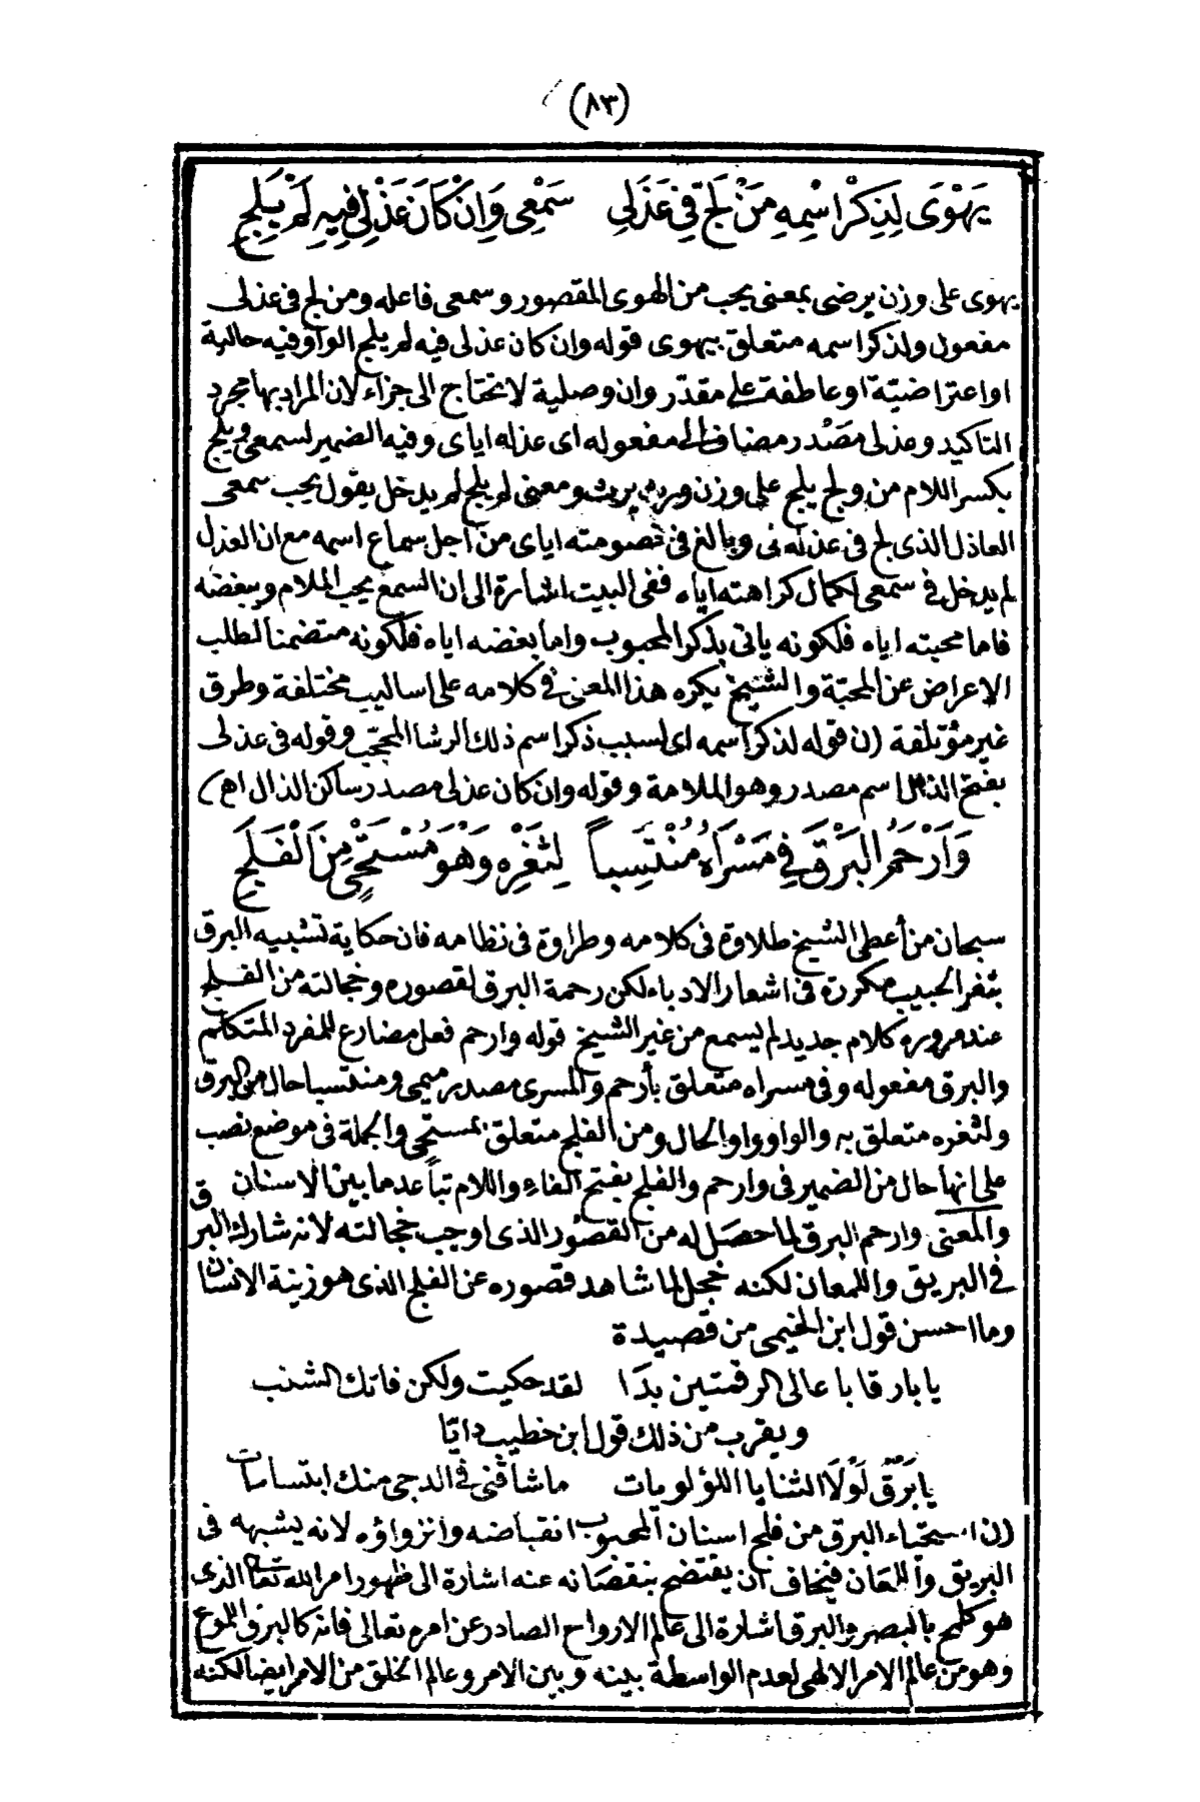 (٨٣)
يَهْوَى لِذِكْرِ اسْمِهِ مَنْ لَجَّ فِي عَذَلِي سَمْعِي وَاِنْ كَانَ عَذْلِي فِيهِ لَمْ يَلِجِ
يهوى على وزن يرضى بمعنى يحب من الهوى المقصور وسمعى فاعله ومن لج فى عذلى
مفعول ولذكر اسمه متعلق بيهوى قوله وان كان عذلى فيه لم يلج الواو فيه حالية
او اعتراضيّة او عاطفة على مقدّر وان وصلية لا تحتاج الى جزاء لان المراد بها مجرد
التاكيد وعذلى مَصْدر مضاف الى مفعوله اى عذله اياى وفيه الضمير لسمعى ويلج
بكسر اللام من ولج يلج على وزن ورث يرث ومعنى لم يلج لم يدخل يقول يحب سمعى
العاذل الذى لج فى عذله لى وبالغ فى خصومته اياى من أجل سماع اسمه مع ان العذل
لم يدخل فى سمعى لكمال كراهته اياه ففى البيت اشارة الى ان السمع يحب الملام ويبغضه
فاما محبته اياه فلكونه ياتى بذكر المحبوب واما بغضه اياه فلكونه متضمنا لطلب
الاعراض عن المحبّة والشيخ يكره هذا المعنى فى كلامه على اساليب مختلفة وطرق
غير مؤتلفة (ن قوله لذكر اسمه اى لسبب ذكر اسم ذلك الرشا المحجّب وقوله فى عذلى
بفتح الذال اسم مصدر وهو الملامة وقوله وان كان عذلى مصدر ساكن الذال اه)
وَاَرْحَمُ البَرْقَ فِي مَسْرَاهُ مُنْتَسِباً لِثَغْرِهِ وَهْوَ مُسْتَحْيٍ مِنَ الْفَلَجِ
سبحان من أعطى الشيخ طلاوة فى كلامه وطراوة فى نظامه فان حكاية تشبيه البرق
بثغر الحبيب مكررة فى اشعار الادباء لكن رحمة البرق لقصوره وخجالته من الفلج
عند مروره كلام جديد لم يسمع من غير الشيخ قوله وارحم فعل مضارع للمفرد المتكلم
والبرق مفعوله وفى مسراه متعلق بأرحم والمسرى مصدر ميمى ومنتسبا حال من البرق
ولثغره متعلق به والواو واو الحال ومن الفلج متعلق بمستحى والجملة فى موضع نصب
على انها حال من الضمير فى وارحم والفلج بفتح الفاء واللام تباعد ما بين الاسنان
والمعنى وارحم البرق لما حصَل له من القصُور الذى اوجب خجالته لانه شارك البرق
فى البريق واللمعان لكنه خجل لما شاهد قصوره عن الفلج الذى هو زينة الانسان
وما احسن قول ابن الخيمى من قصيدة
يا بارقا با عالى الرقمتين بدَا لقد حكيت ولكن فاتك الشنب
ويقرب من ذلك قول ابن خطيب داريّا
يا بَرْقُ لَوْلَا الثنايا اللؤلويات ما شاقنى فى الدجى منك ابتسامات
(ن استحياء البرق من فلج اسنان المحبوب انقباضه وانزواؤه لانه يشبهه فى
البريق واللمعان فيخاف ان يفتضح بنقصَانه عنه اشارة الى ظهور امر الله تعالى الذى
هو كلمح بالبصر والبرق اشارة الى عالم الارواح الصادر عن امره تعالى فانه كالبرق اللموع
وهو من عالم الامر الالهى لعدم الواسطة بينه وبين الامر وعالم الخلق من الامر ايضا لكنه